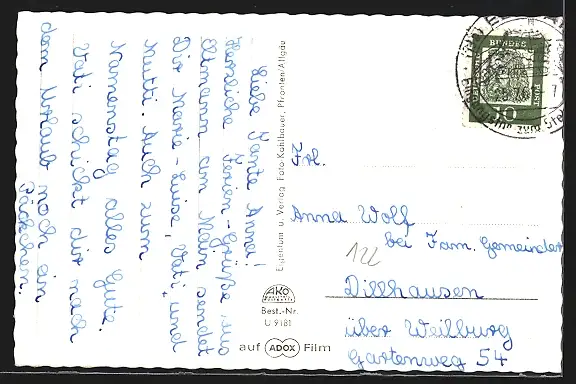 Liebe Tante Anna!
Herzliche Ferien-Grüße, aus
Eltmann am Main sendet
Dir Marie-Luise, Vati, und
Mutti. Auch zum
Namenstag alles Gute.
Vati schickt dir nach
dem Urlaub noch ein
Päckchen.
Eigentum u. Verlag Foto Kohlbauer, Pfronten/Allgäu
AKO
Best.-Nr.
U 9181
auf ADOX Film
DEUTSCHE
BUNDES
POST
10
Frl.
Anna Wolf
bei Fam. Gemeinder
122
Dillhausen
über Weilburg
Gartenweg 54